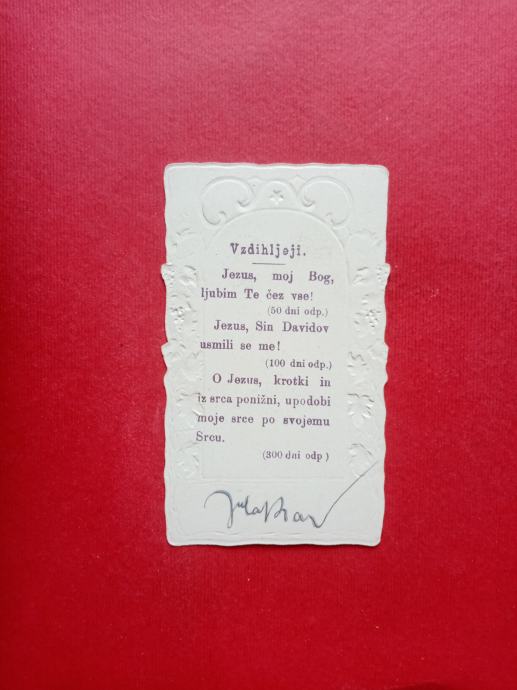 Vzdihljeji.
Jezus, moj Bog,
ljubim Te čez vse!
(50 dni odp.)
Jezus, Sin Davidov
usmili se me!
(100 dni odp.)
O Jezus, krotki in
iz srca ponižni, upodobi
moje srce po svojemu
Srcu.
(300 dni odp )